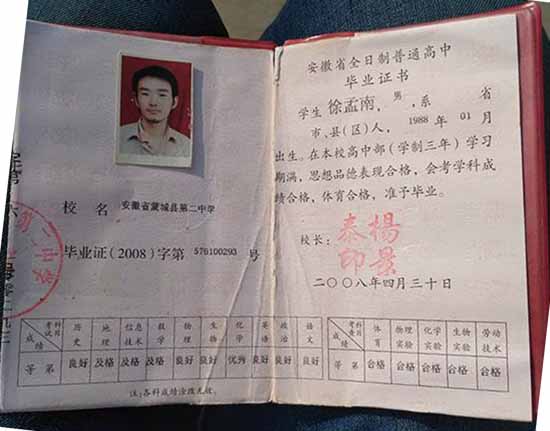 校 名 安徽省蒙城县第二中学
毕业证(2008)字第 576100293 号
考试科目 成绩 历史 地理 信息技术 数学 物理 生物 化学 英语 政治 语文
等 第 良好 及格 及格 及格 良好 良好 优秀 良好 良好 良好
注:各科成绩涂改无效。
安徽省全日制普通高中
毕业证书
学生 徐孟南,男,系 省
市、县(区)人, 1988 年 01 月
出生。在本校高中部(学制三年)学习
期满,思想品德表现合格,会考学科成
绩合格,体育合格,准予毕业。
校长:
二〇〇八年四月三十日
考查科目 成绩 体育 物理实验 化学实验 生物实验 劳动技术
等 第 合格 合格 合格 合格 合格